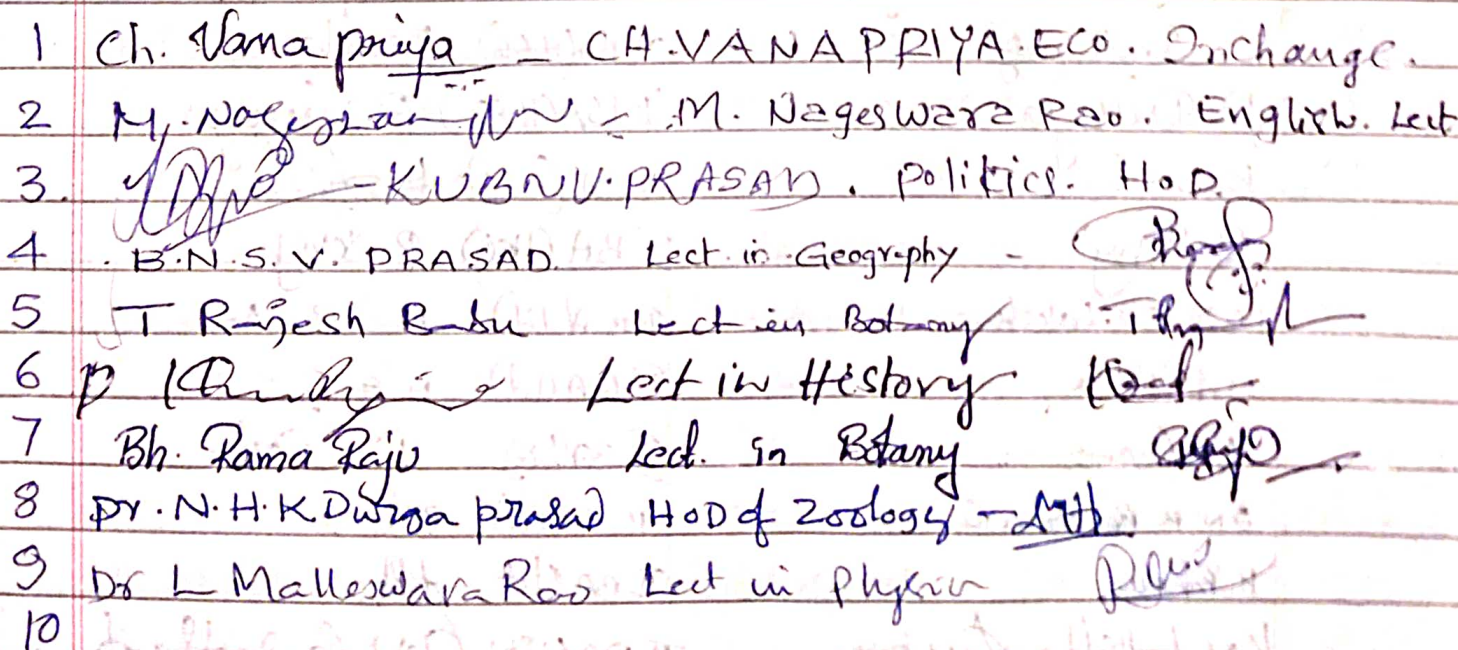 1 Ch. Vana priya - CH.VANAPRIYA.ECO. Incharge.
2 M. Nageswara - M. Nageswara Rao. English. Lect
3. - KUBNV.PRASAD. Politics. HoD.
4 B.N.S.V. PRASAD. Lect. in Geography -
5 T Rajesh Babu Lect in Botany
6 P Lect in History
7 Bh. Rama Raju Lect. in Botany
8 Dr. N.H.K Durga prasad HoD of Zoology -
9 Dr L Malleswara Rao Lect in Physics
10